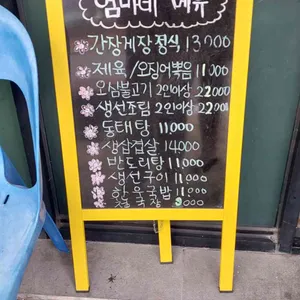 엄마네 메뉴
간장게장 정식 13000
제육/오징어볶음 11000
오삼불고기 2인이상 22000
생선조림 2인이상 22000
동태탕 11,000
생삼겹살 14000
반도리탕 11000
생선구이 11,000
한우국밥 11,000
청국장 9000